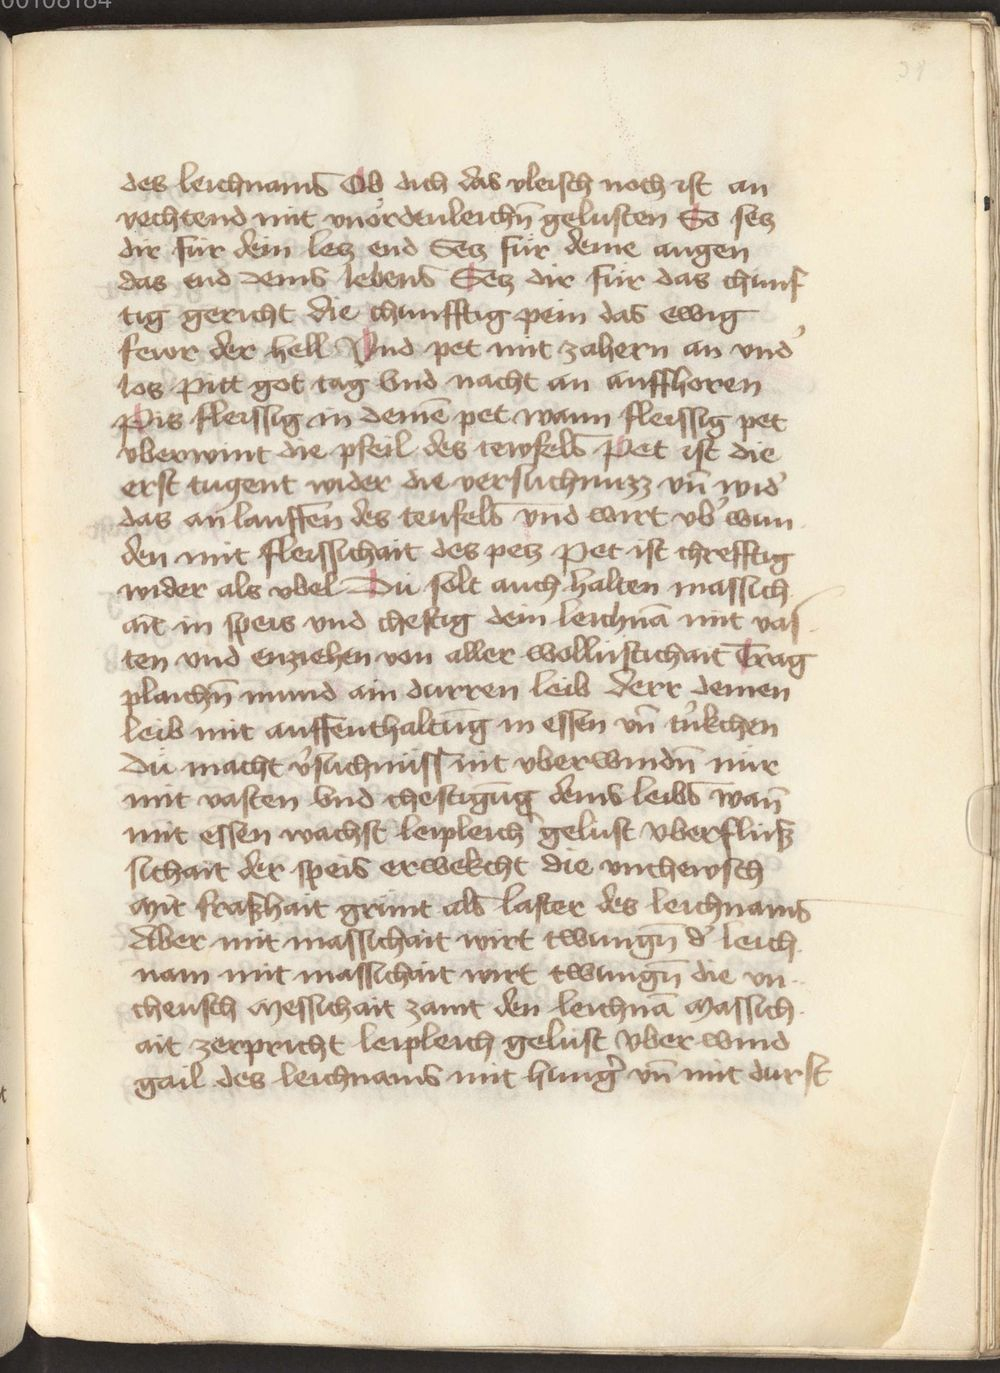 00108184
31
des leichnams Ob dich das vleisch noch ist an
vechtend mit vnordenleichn̄ gelusten So secz
dir für dein lecz end Secz für deine augen
das end deins lebens Secz dir für das chunf
tig gericht die chunfftig pein das ewig
fewr der hell Vnd pet mit zahern an vnd̾
los Pitt got tag vnd nacht an auffhoren
Pis fleissig in deinē pet wann fleissig pet
vberwint die pfeil des tewfels Pet ist die
erst tugent wider die versuchnuzz vn̄ wid̾
das anlauffen des teufels vnd wirt vb̾wun
den mit fleissichait des pecz Pet ist chrefftig
wider als vbel Du solt auch halten massich
ait in speis vnd chestig dein leichnā mit vas
ten vnd enziehen von aller wollustichait Trag
plaichn̄ mund ain durren leib derr deinen
leib mit auffenthaltūg in essen vn̄ tru̍kchen
Du macht v̾suchnuss nit vberwindn̄ nur
mit vasten vnd chestigūg deins leibs wan̄
mit essen wachst leipleich gelust vberflüss
ichait der speis erwekcht die vnchewsch
Mit frashait grünt als laster des leichnams
Aber mit massichait wirt twungn̄ d̾ leich
nam mit massichait wirt twungn̄ die vn
cheusch Messichait zamt den leichnā Massich
ait zerpricht leipleich gelust vber wind
gail des leichnams mit hung̾ vn̄ mit durst